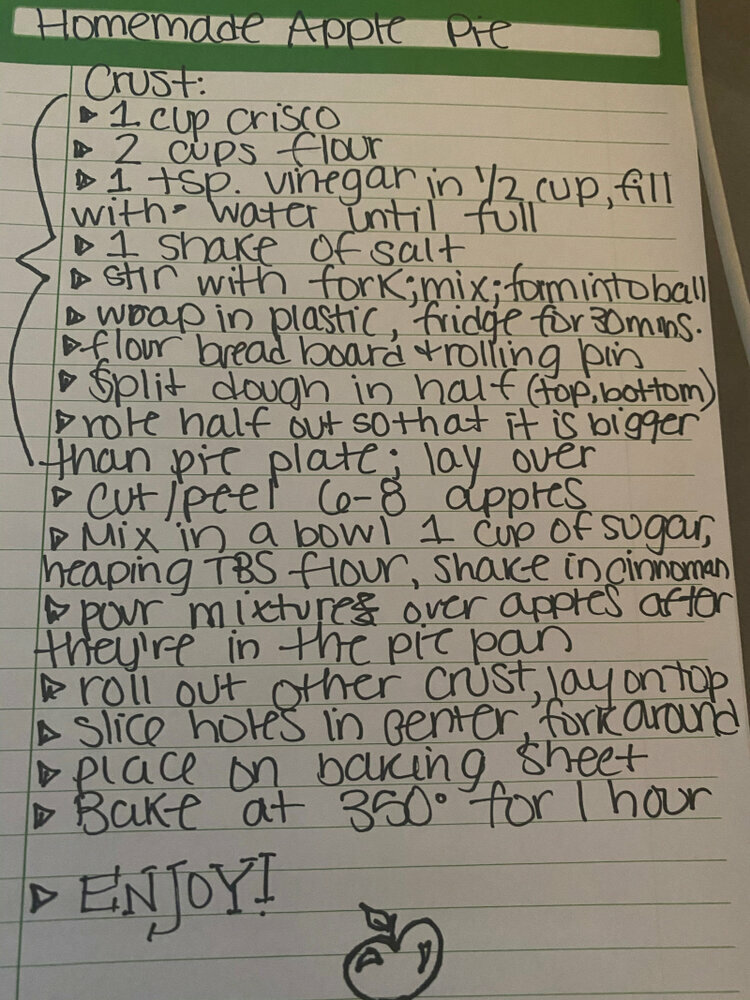 Homemade Apple Pie
Crust:
▷ 1 cup crisco
▷ 2 cups flour
▷ 1 tsp. vinegar in 1/2 cup, fill
with water until full
▷ 1 shake of salt
▷ stir with fork; mix; form into ball
▷ wrap in plastic, fridge for 30 mins.
▷ flour bread board + rolling pin
▷ Split dough in half (top, bottom)
▷ role half out so that it is bigger
than pie plate; lay over
▷ cut/peel 6-8 apples
▷ Mix in a bowl 1 cup of sugar,
heaping TBS flour, shake in cinnoman
▷ pour mixtures over apples after
they're in the pie pan
▷ roll out other crust, lay on top
▷ slice holes in center, fork around
▷ place on baking sheet
▷ Bake at 350° for 1 hour
▷ ENJOY!